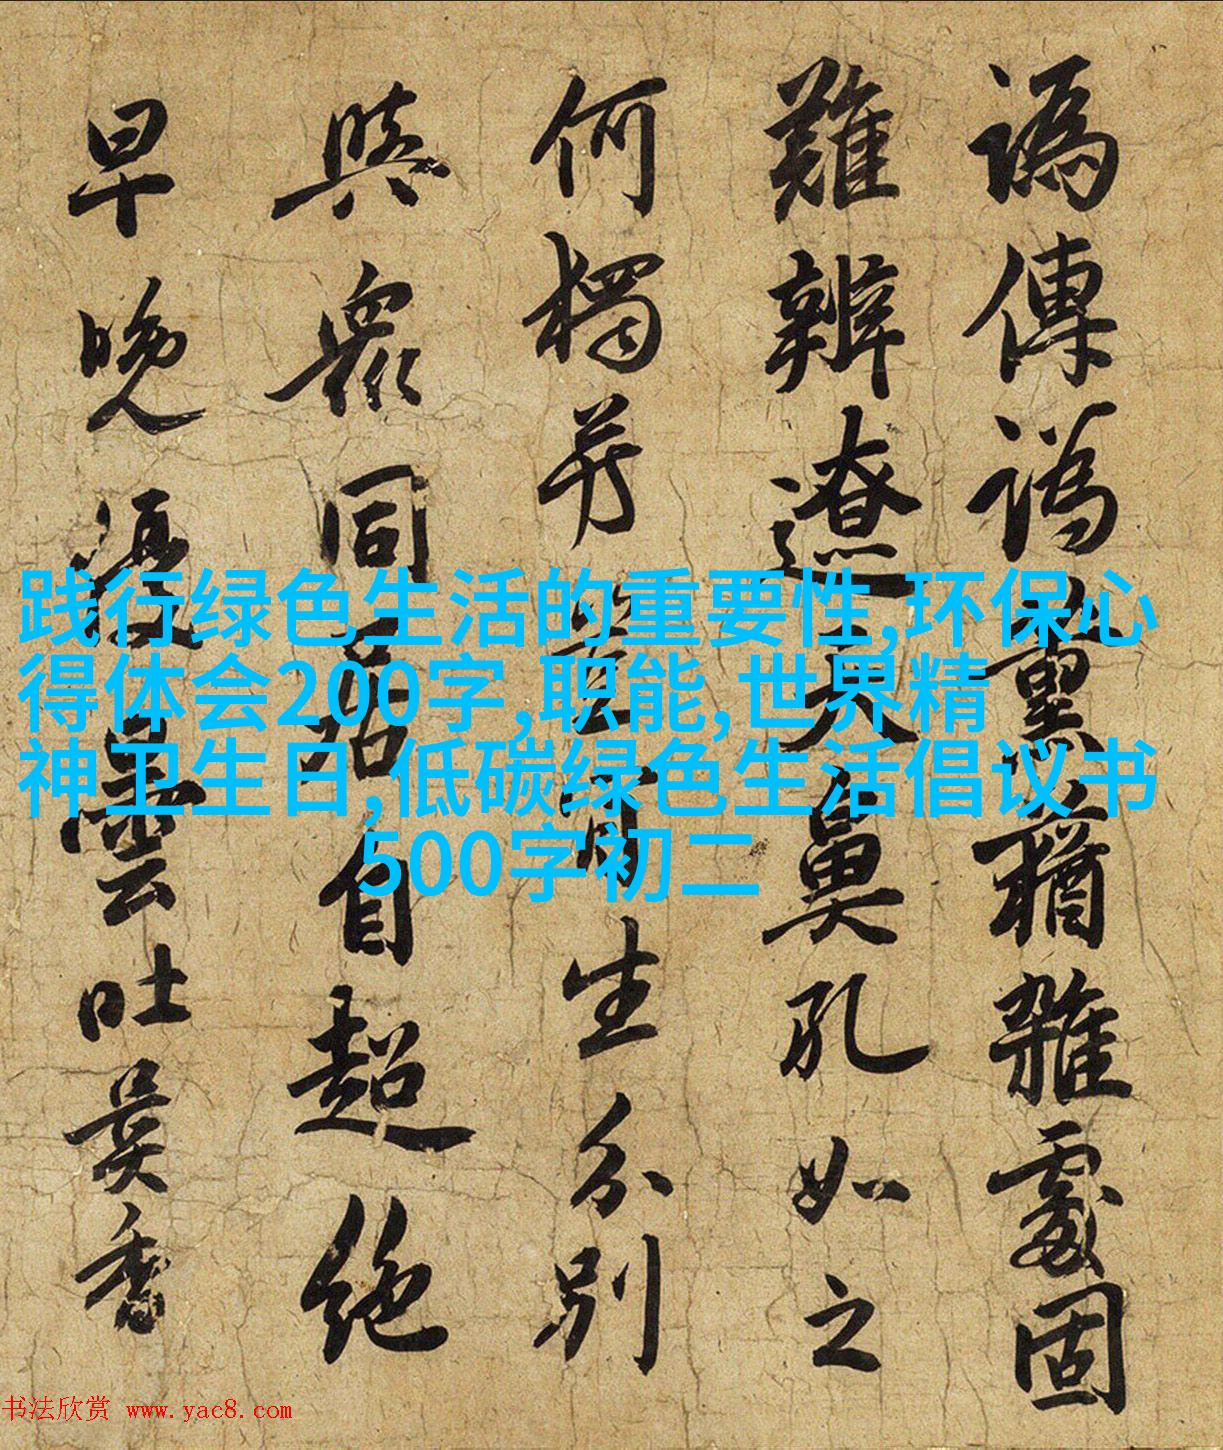 譌傳譌薰蕕雜處固
難辨遼天鼻孔如之
何獨生分別
與眾同居自超絕
早晚優曇吐異香
践行绿色生活的重要性,环保心
得体会200字,职能,世界精
神卫生日,低碳绿色生活倡议书
500字初二
书法欣赏 www.yac8.com